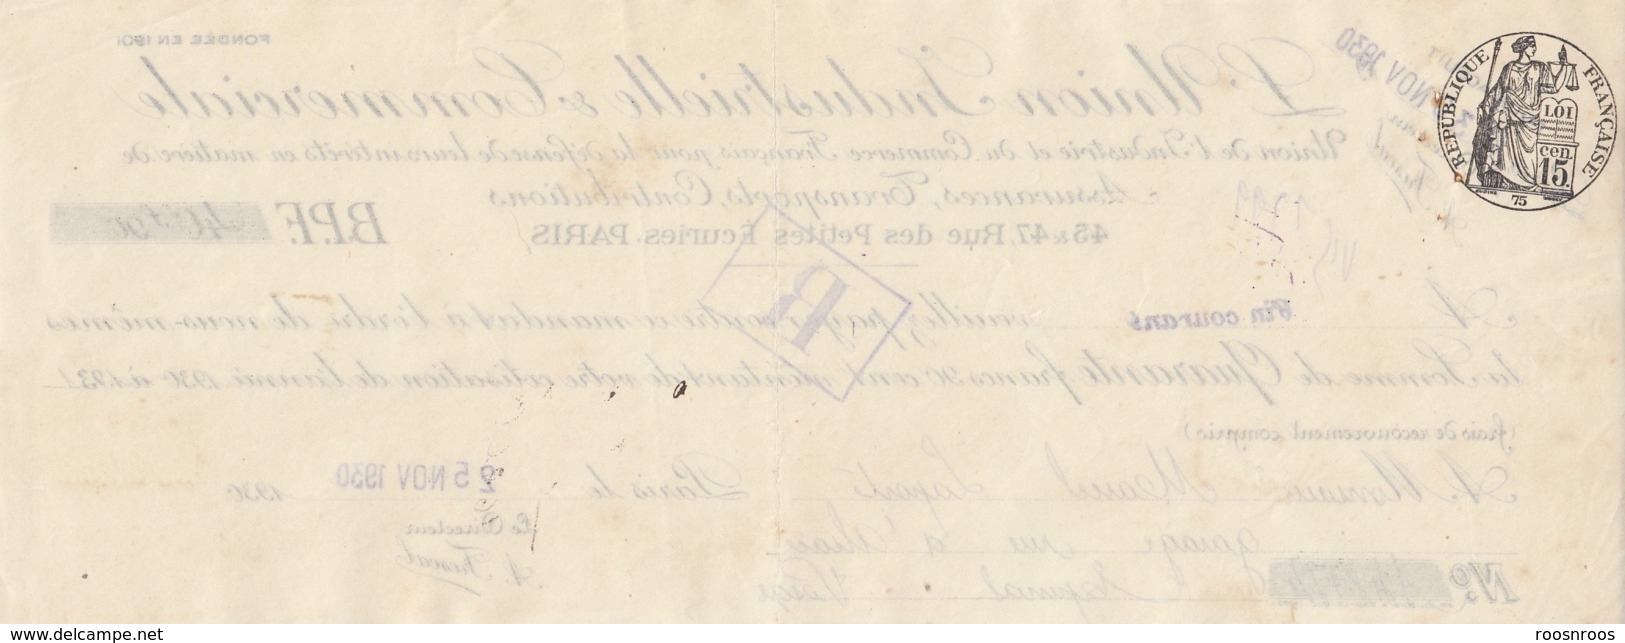 FONDÉE EN 1901
L'Union Industrielle & Commerciale
Union de l'Industrie et du Commerce Français pour la défense de leurs intérêts en matière de
Assurances, Transports, Contributions
45 & 47, Rue des Petites Écuries, PARIS
B.P.F. 40 f 90
NOV 1930
RÉPUBLIQUE FRANÇAISE
LOI
cen.
15.
75
1799
B
A Fin courant veuillez payer contre ce mandat à l'ordre de nous-mêmes
la Somme de Quarante francs 90 cent, montant de votre cotisation de l'année 1930 à 1931
(frais de recouvrement compris)
A Monsieur Laporte Paris, le 25 NOV 1930 1930
Garage rue d' Le Directeur
Nº
www.delcampe.net
roosnroos